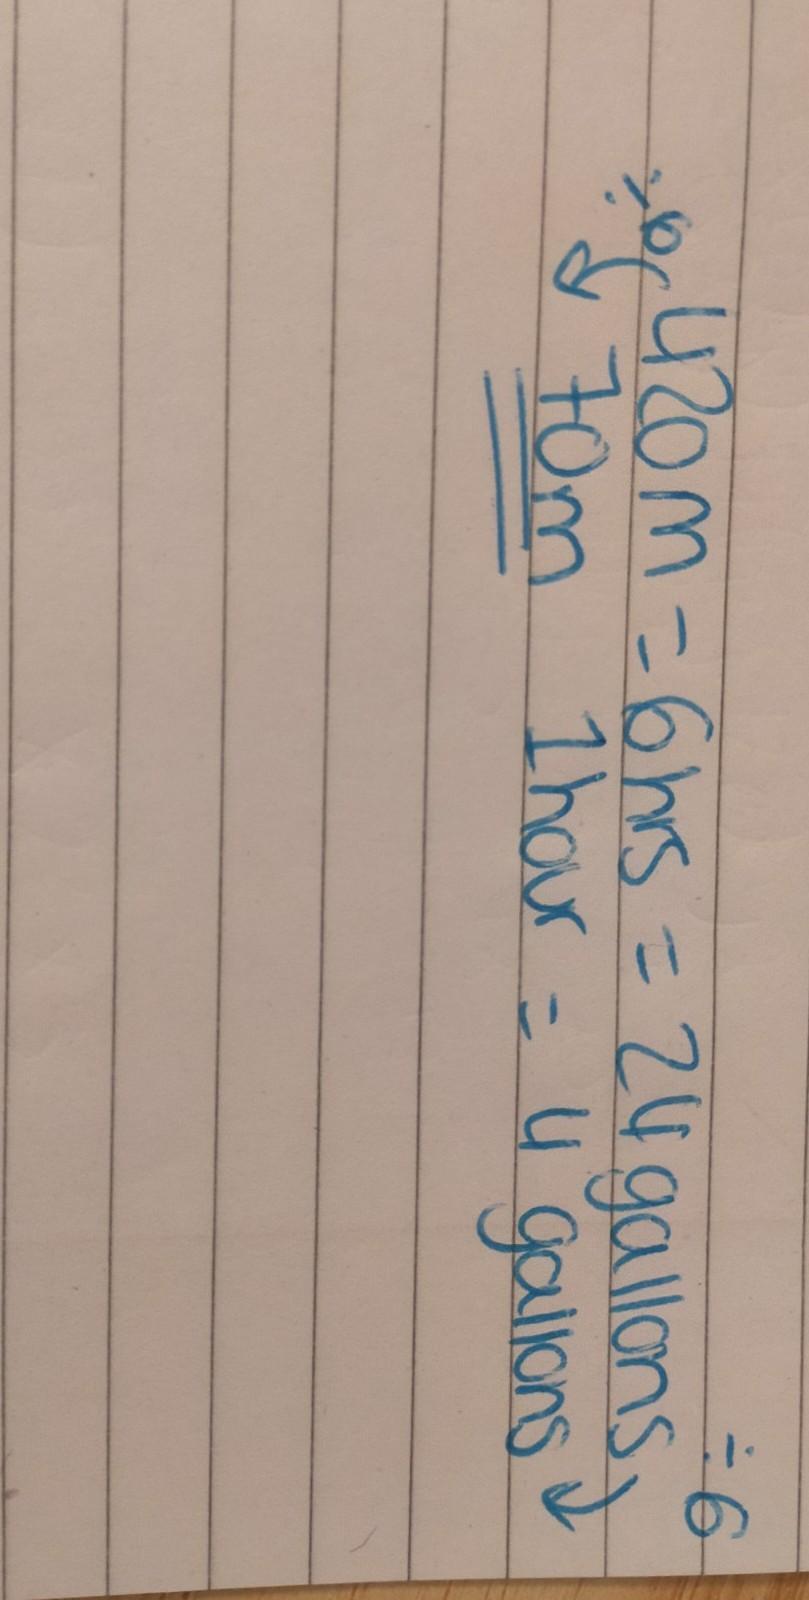 ÷6 420m = 6hrs = 24 gallons ÷6
70m 1 hour = 4 gallons